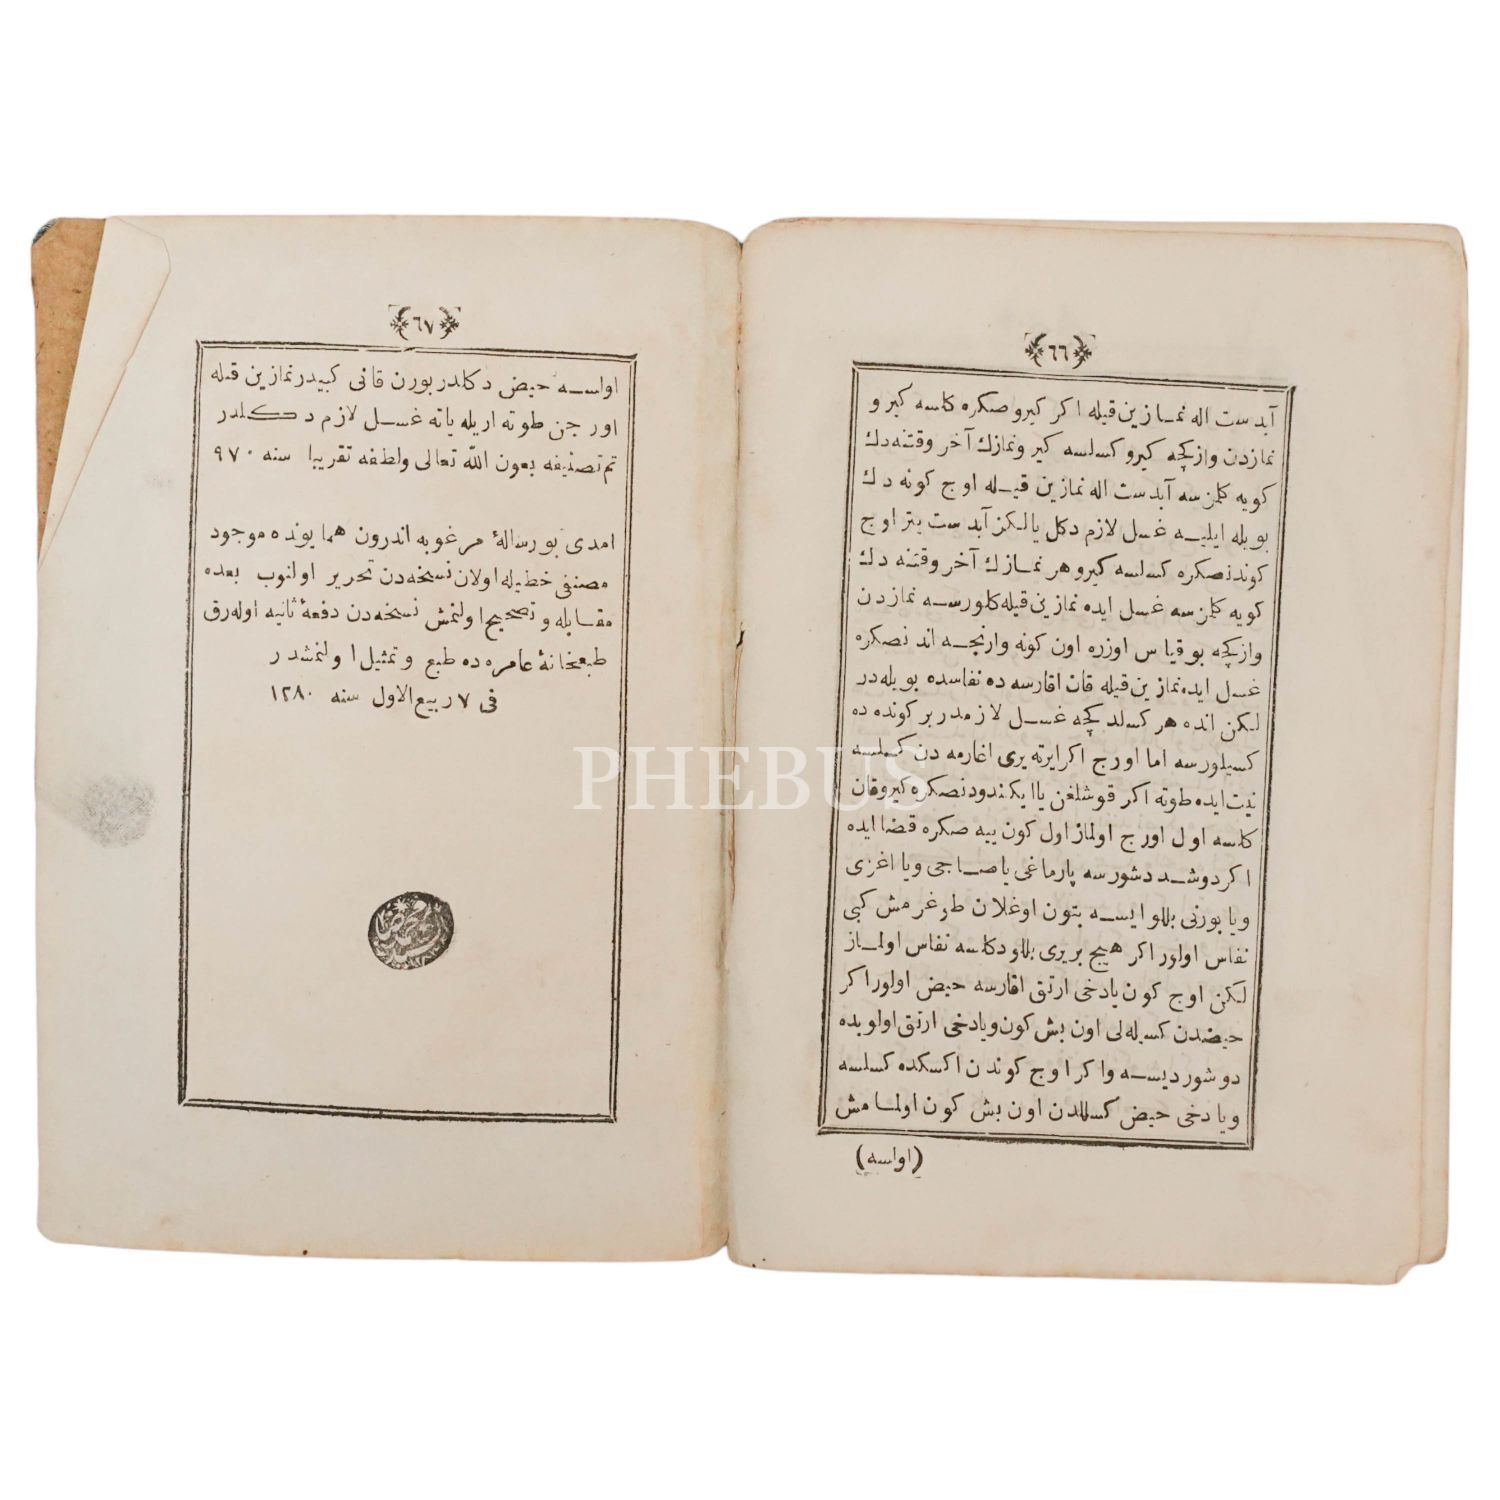 ﴿٦٦﴾
آبدست اله نمازین قیله اكر كیرو صكره كاسه كیرو
نمازدن وازكچه كیرو كسلسه كیرو نمازك آخر وقتنه دك
كویه كلمزسه آبدست اله نمازین قیله اوچ كونه دك
بویله ایلیه غسل لازم دكل یالكز آبدست یتر اوچ
كوندنصكره كسلسه كیرو هر نمازك آخر وقتنه دك
كویه كلمزسه غسل ایده نمازین قیله كلورسه نمازدن
وازكچه بو قیاس اوزره اون كونه وارنجه اندنصكره
غسل ایده نمازین قیله قان اقارسه ده نفاسده بویله در
لیكن انده هر كسلدكچه غسل لازمدر بر كونده ده
كسیلورسه اما اورج اكر ایرته یری اغارمه دن كسلسه
نیت ایده طوته اكر قوشلغن یا ایكندودنصكره كیرو قان
كاسه اول اورج اولماز اول كون ییه صكره قضا ایده
اكر دوشد دشورسه پارماغی یا صاجی ویا اغزی
ویا بورنی بللو ایسه بتون اوغلان طوغرمش كبی
نفاس اولور اكر هیچ بریری بللو دكلسه نفاس اولماز
لیكن اوچ كون یادخی ارتق اقارسه حیض اولور اكر
حیضدن كسیله لی اون بش كون ویادخی ارتق اولوبده
دوشوردیسه واكر اوچ كوندن اكسكده كسلسه
ویادخی حیض كسللدن اون بش كون اولمامش
(اولسه)
﴿٦٧﴾
اولسه حیض دكلدر بورن قانی كبیدر نمازین قیله
اورجن طوته اریله یاته غسل لازم دكلدر
تم تصنیفه بعون الله تعالی ولطفه تقریبا سنه ٩٧٠
امدی بو رسالهٔ مرغوبه اندرون همایونده موجود
مصنفی خطیله اولان نسخه دن تحریر اولنوب بعده
مقابله و تصحیح اولنمش نسخه دن دفعهٔ ثانیه اوله رق
طبعخانهٔ عامره ده طبع و تمثیل اولنمشدر
فی ٧ ربیع الاول سنه ١٢٨٠
PHEBUS